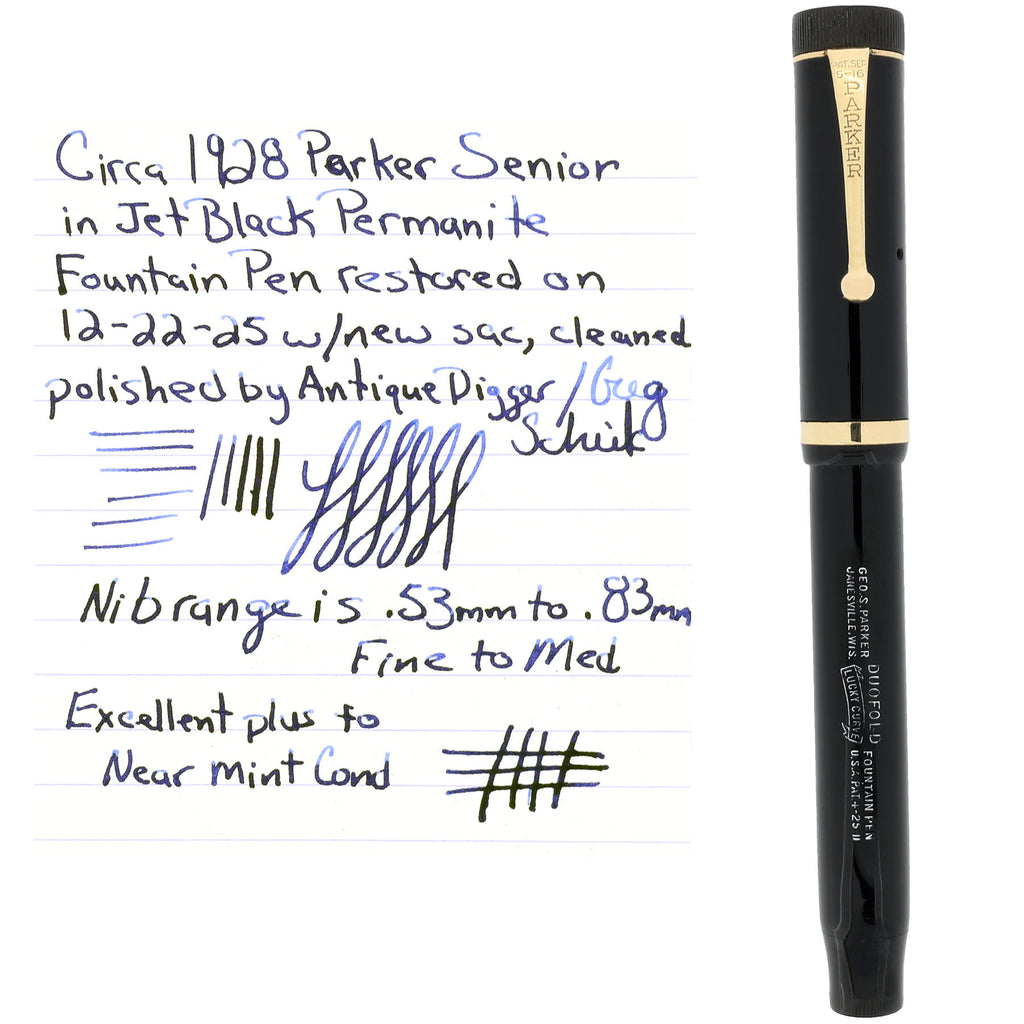 Circa 1928 Parker Senior
in Jet Black Permanite
Fountain Pen restored on
12-22-25 w/new sac, cleaned
polished by Antique Digger / Greg
Schiek
Nib range is .53mm to .83mm
Fine to Med
Excellent plus to
Near mint Cond
PAT. SEP
5-16
PARKER
GEO. S. PARKER DUOFOLD FOUNTAIN PEN
JANESVILLE, WIS. LUCKY CURVE U.S.A. PAT. 4-25 11